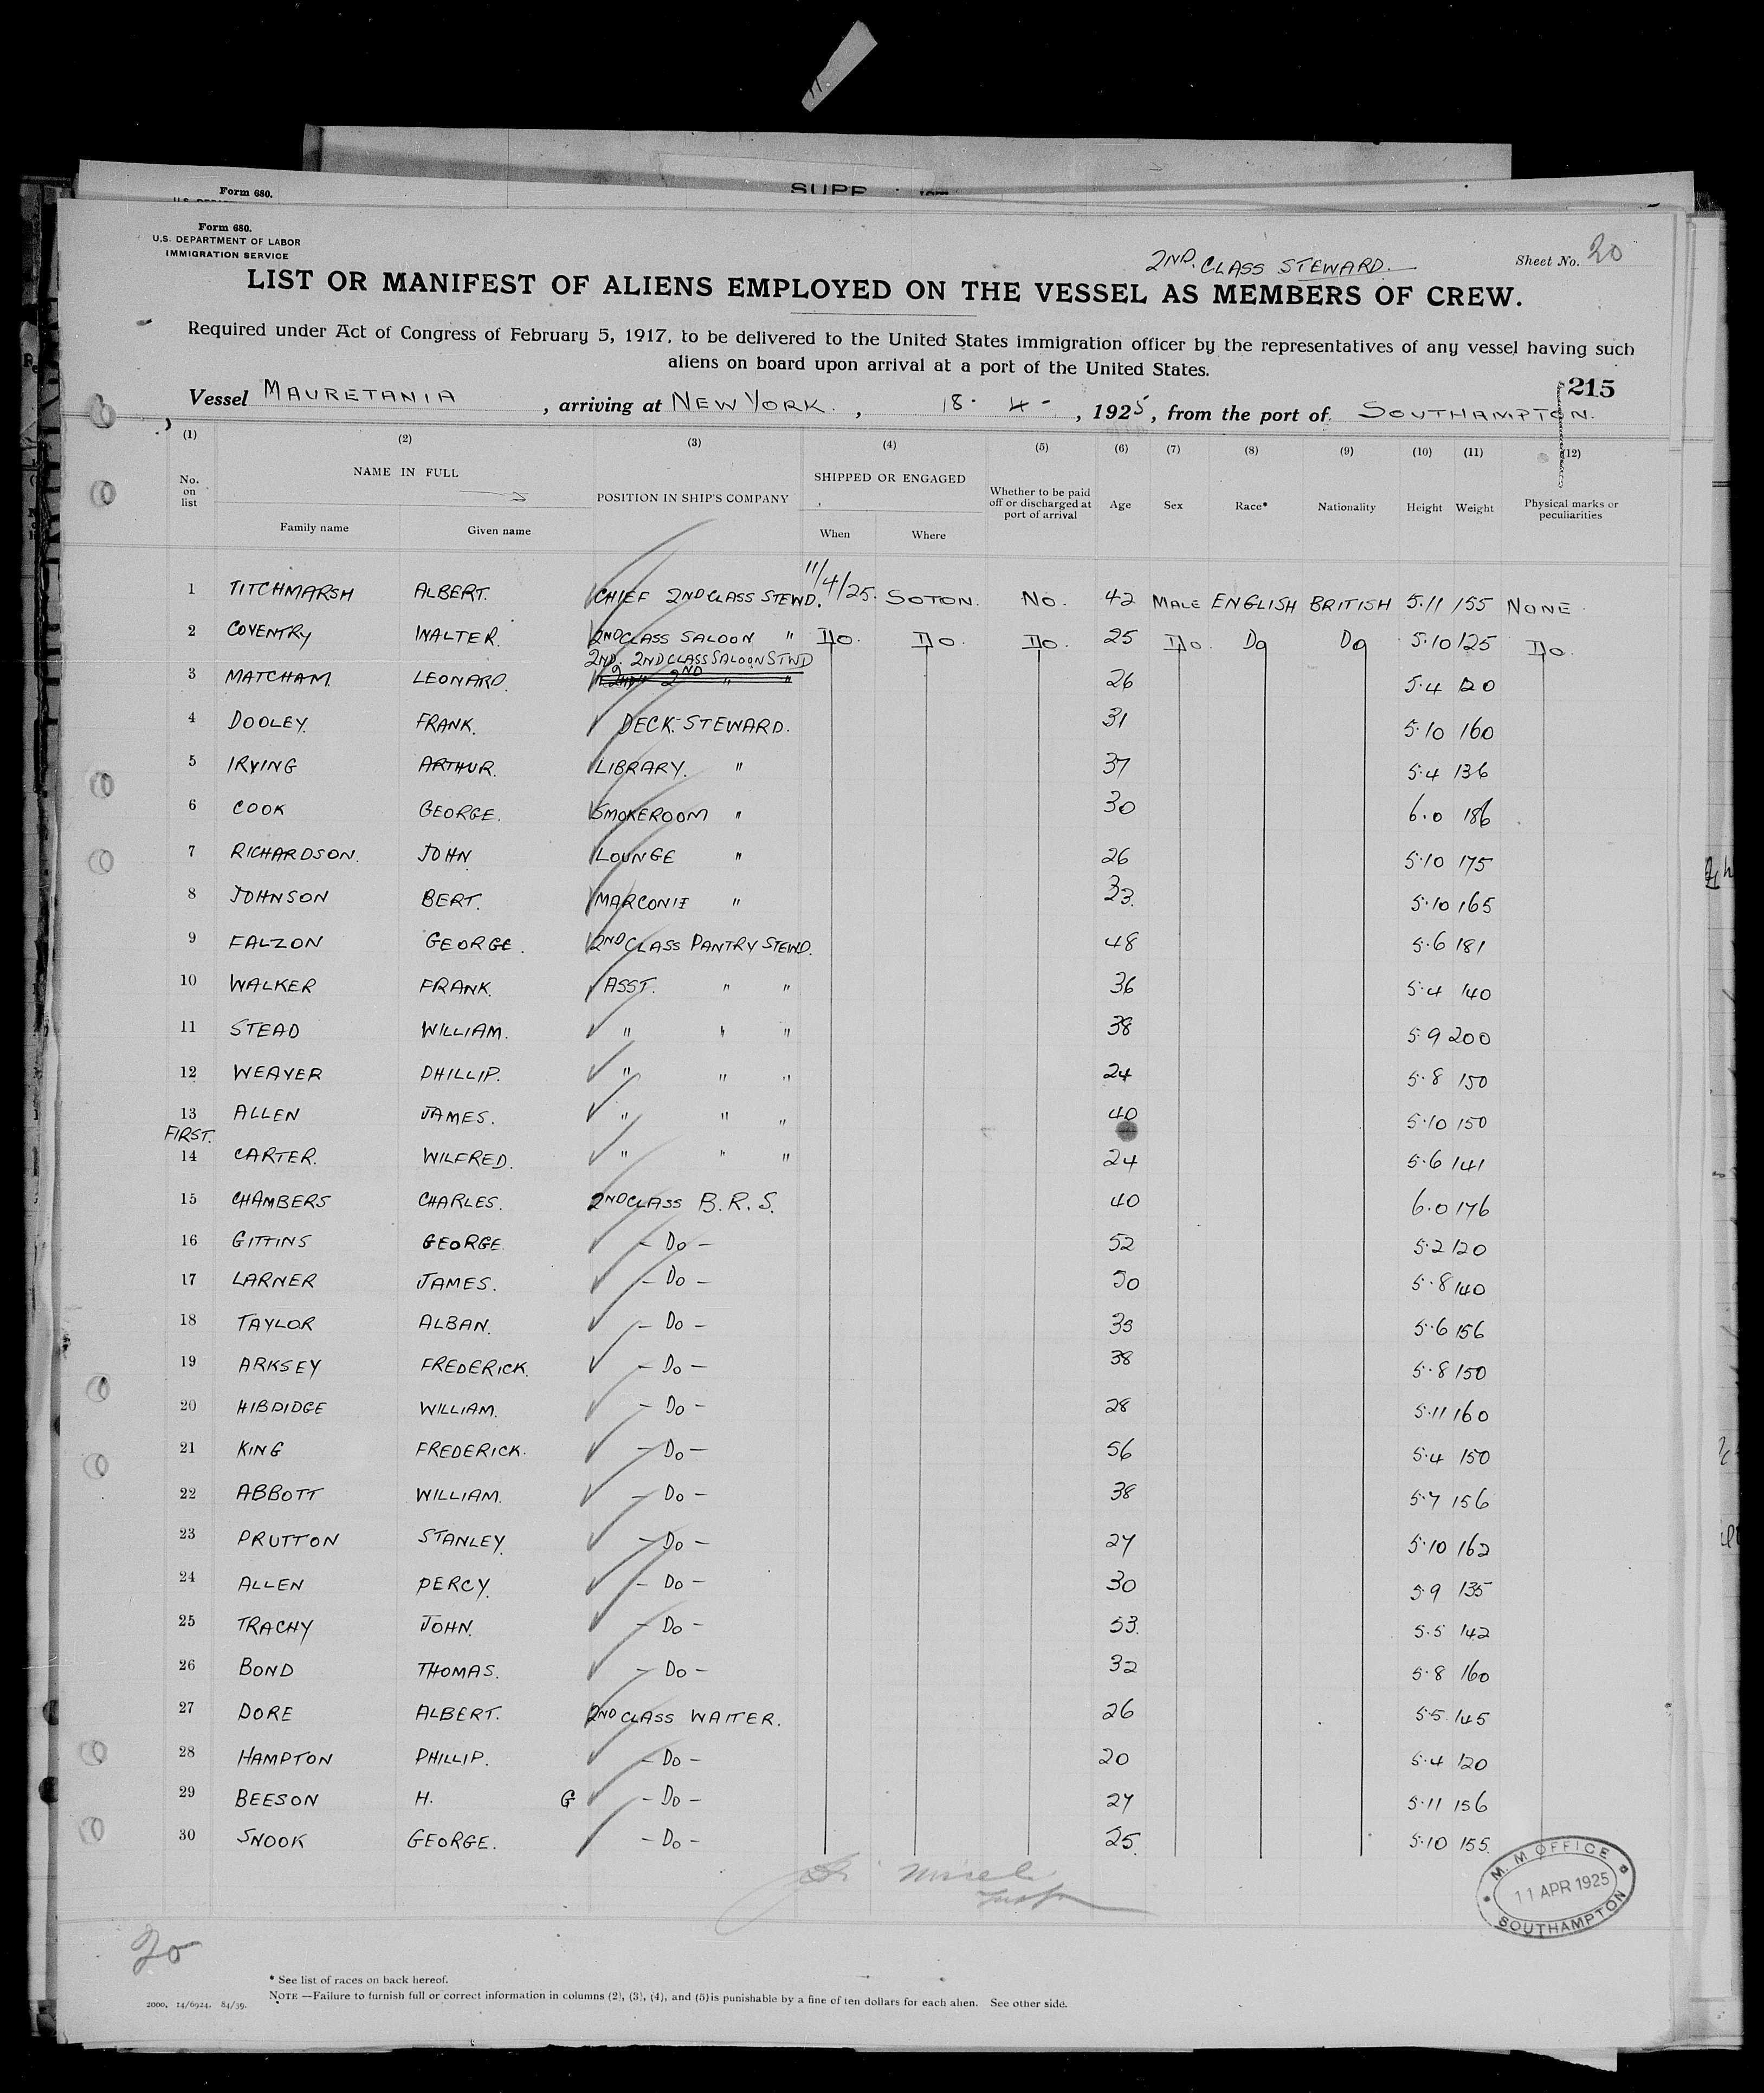 SUPP
Form 680.
Form 680.
U.S. DEPARTMENT OF LABOR
IMMIGRATION SERVICE
2ND. CLASS STEWARD.
Sheet No. 20
LIST OR MANIFEST OF ALIENS EMPLOYED ON THE VESSEL AS MEMBERS OF CREW.
Required under Act of Congress of February 5, 1917, to be delivered to the United States immigration officer by the representatives of any vessel having such
aliens on board upon arrival at a port of the United States.
215
Vessel MAURETANIA, arriving at NEW YORK., 18 - 4 -, 1925, from the port of SOUTHAMPTON.
(1) (2) (3) (4) (5) (6) (7) (8) (9) (10) (11) (12)
No. on list NAME IN FULL Family name Given name POSITION IN SHIP'S COMPANY SHIPPED OR ENGAGED When Where Whether to be paid off or discharged at port of arrival Age Sex Race* Nationality Height Weight Physical marks or peculiarities
1 TITCHMARSH ALBERT. CHIEF 2ND CLASS STEWD. 11/4/25. SOTON. NO. 42 MALE ENGLISH BRITISH 5.11 155 NONE
2 COVENTRY WALTER. 2ND CLASS SALOON " Do. Do. Do. 25 Do. Do Do 5.10 125 Do.
2ND. 2ND CLASS SALOON STWD
3 MATCHAM. LEONARD. 26 5.4 120
4 DOOLEY. FRANK. DECK STEWARD. 31 5.10 160
5 IRVING ARTHUR. LIBRARY. " 37 5.4 136
6 COOK GEORGE. SMOKEROOM " 30 6.0 186
7 RICHARDSON. JOHN LOUNGE " 26 5.10 175
8 JOHNSON BERT. MARCONI " 33. 5.10 165
9 FALZON GEORGE. 2ND CLASS PANTRY STEWD. 48 5.6 181
10 WALKER FRANK. ASST. " " 36 5.4 140
11 STEAD WILLIAM. " " " 38 5.9 200
12 WEAVER PHILLIP. " " " 24 5.8 150
13 ALLEN JAMES. " " " 40 5.10 150
FIRST.
14 CARTER. WILFRED. " " " 24 5.6 141
15 CHAMBERS CHARLES. 2ND CLASS B.R.S. 40 6.0 176
16 GITTINS GEORGE. - Do - 52 5.2 120
17 LARNER JAMES. - Do - 50 5.8 140
18 TAYLOR ALBAN. - Do - 35 5.6 156
19 ARKSEY FREDERICK. - Do - 38 5.8 150
20 HIBDIDGE WILLIAM. - Do - 28 5.11 160
21 KING FREDERICK. - Do - 56 5.4 150
22 ABBOTT WILLIAM. - Do - 38 5.7 156
23 PRUTTON STANLEY. - Do - 27 5.10 162
24 ALLEN PERCY. - Do - 30 5.9 135
25 TRACHY JOHN. - Do - 53. 5.5 142
26 BOND THOMAS. - Do - 32 5.8 160
27 DORE ALBERT. 2ND CLASS WAITER. 26 5.5 145
28 HAMPTON PHILLIP. - Do - 20 5.4 120
29 BEESON H. G - Do - 27 5.11 156
30 SNOOK GEORGE. - Do - 25. 5.10 155.
M. M OFFICE
11 APR 1925
SOUTHAMPTON
20
* See list of races on back hereof.
NOTE —Failure to furnish full or correct information in columns (2), (3), (4), and (5) is punishable by a fine of ten dollars for each alien. See other side.
2000, 14/6924. 84/39.